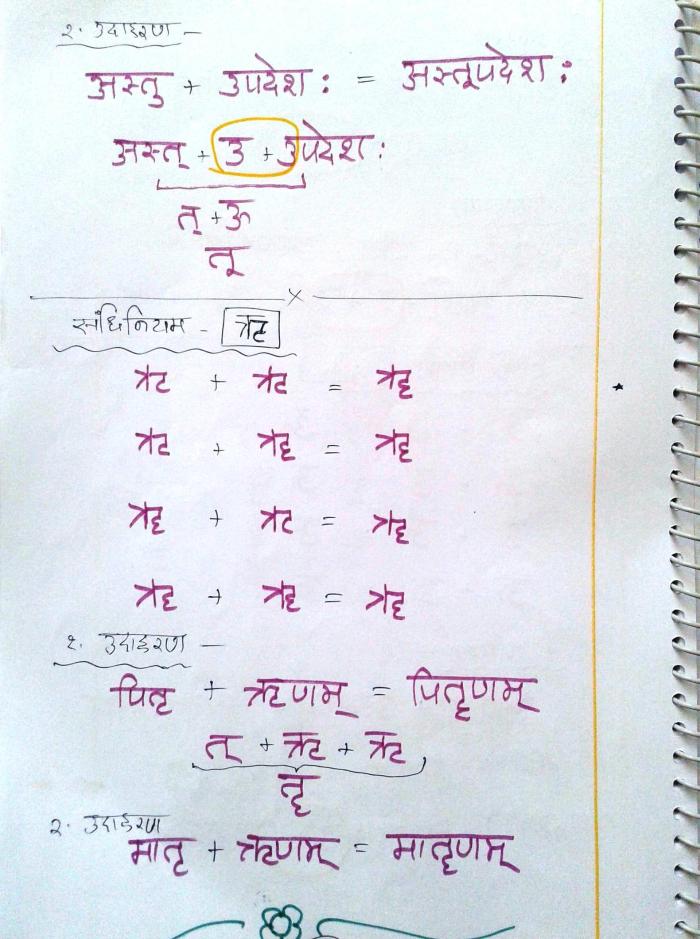 २. उदाहरण –
अस्तु + उपदेश: = अस्तूपदेश:
अस्त् + उ + उपदेश:
त् + ऊ
तू
x
संधिनियम - ऋ
ऋ + ऋ = ॠ
ऋ + ॠ = ॠ
ॠ + ऋ = ॠ
ॠ + ॠ = ॠ
१. उदाहरण –
पितृ + ऋणम् = पितॄणम्
त् + ऋ + ऋ
तॄ
२. उदाहरण
मातृ + ऋणम् = मातॄणम्